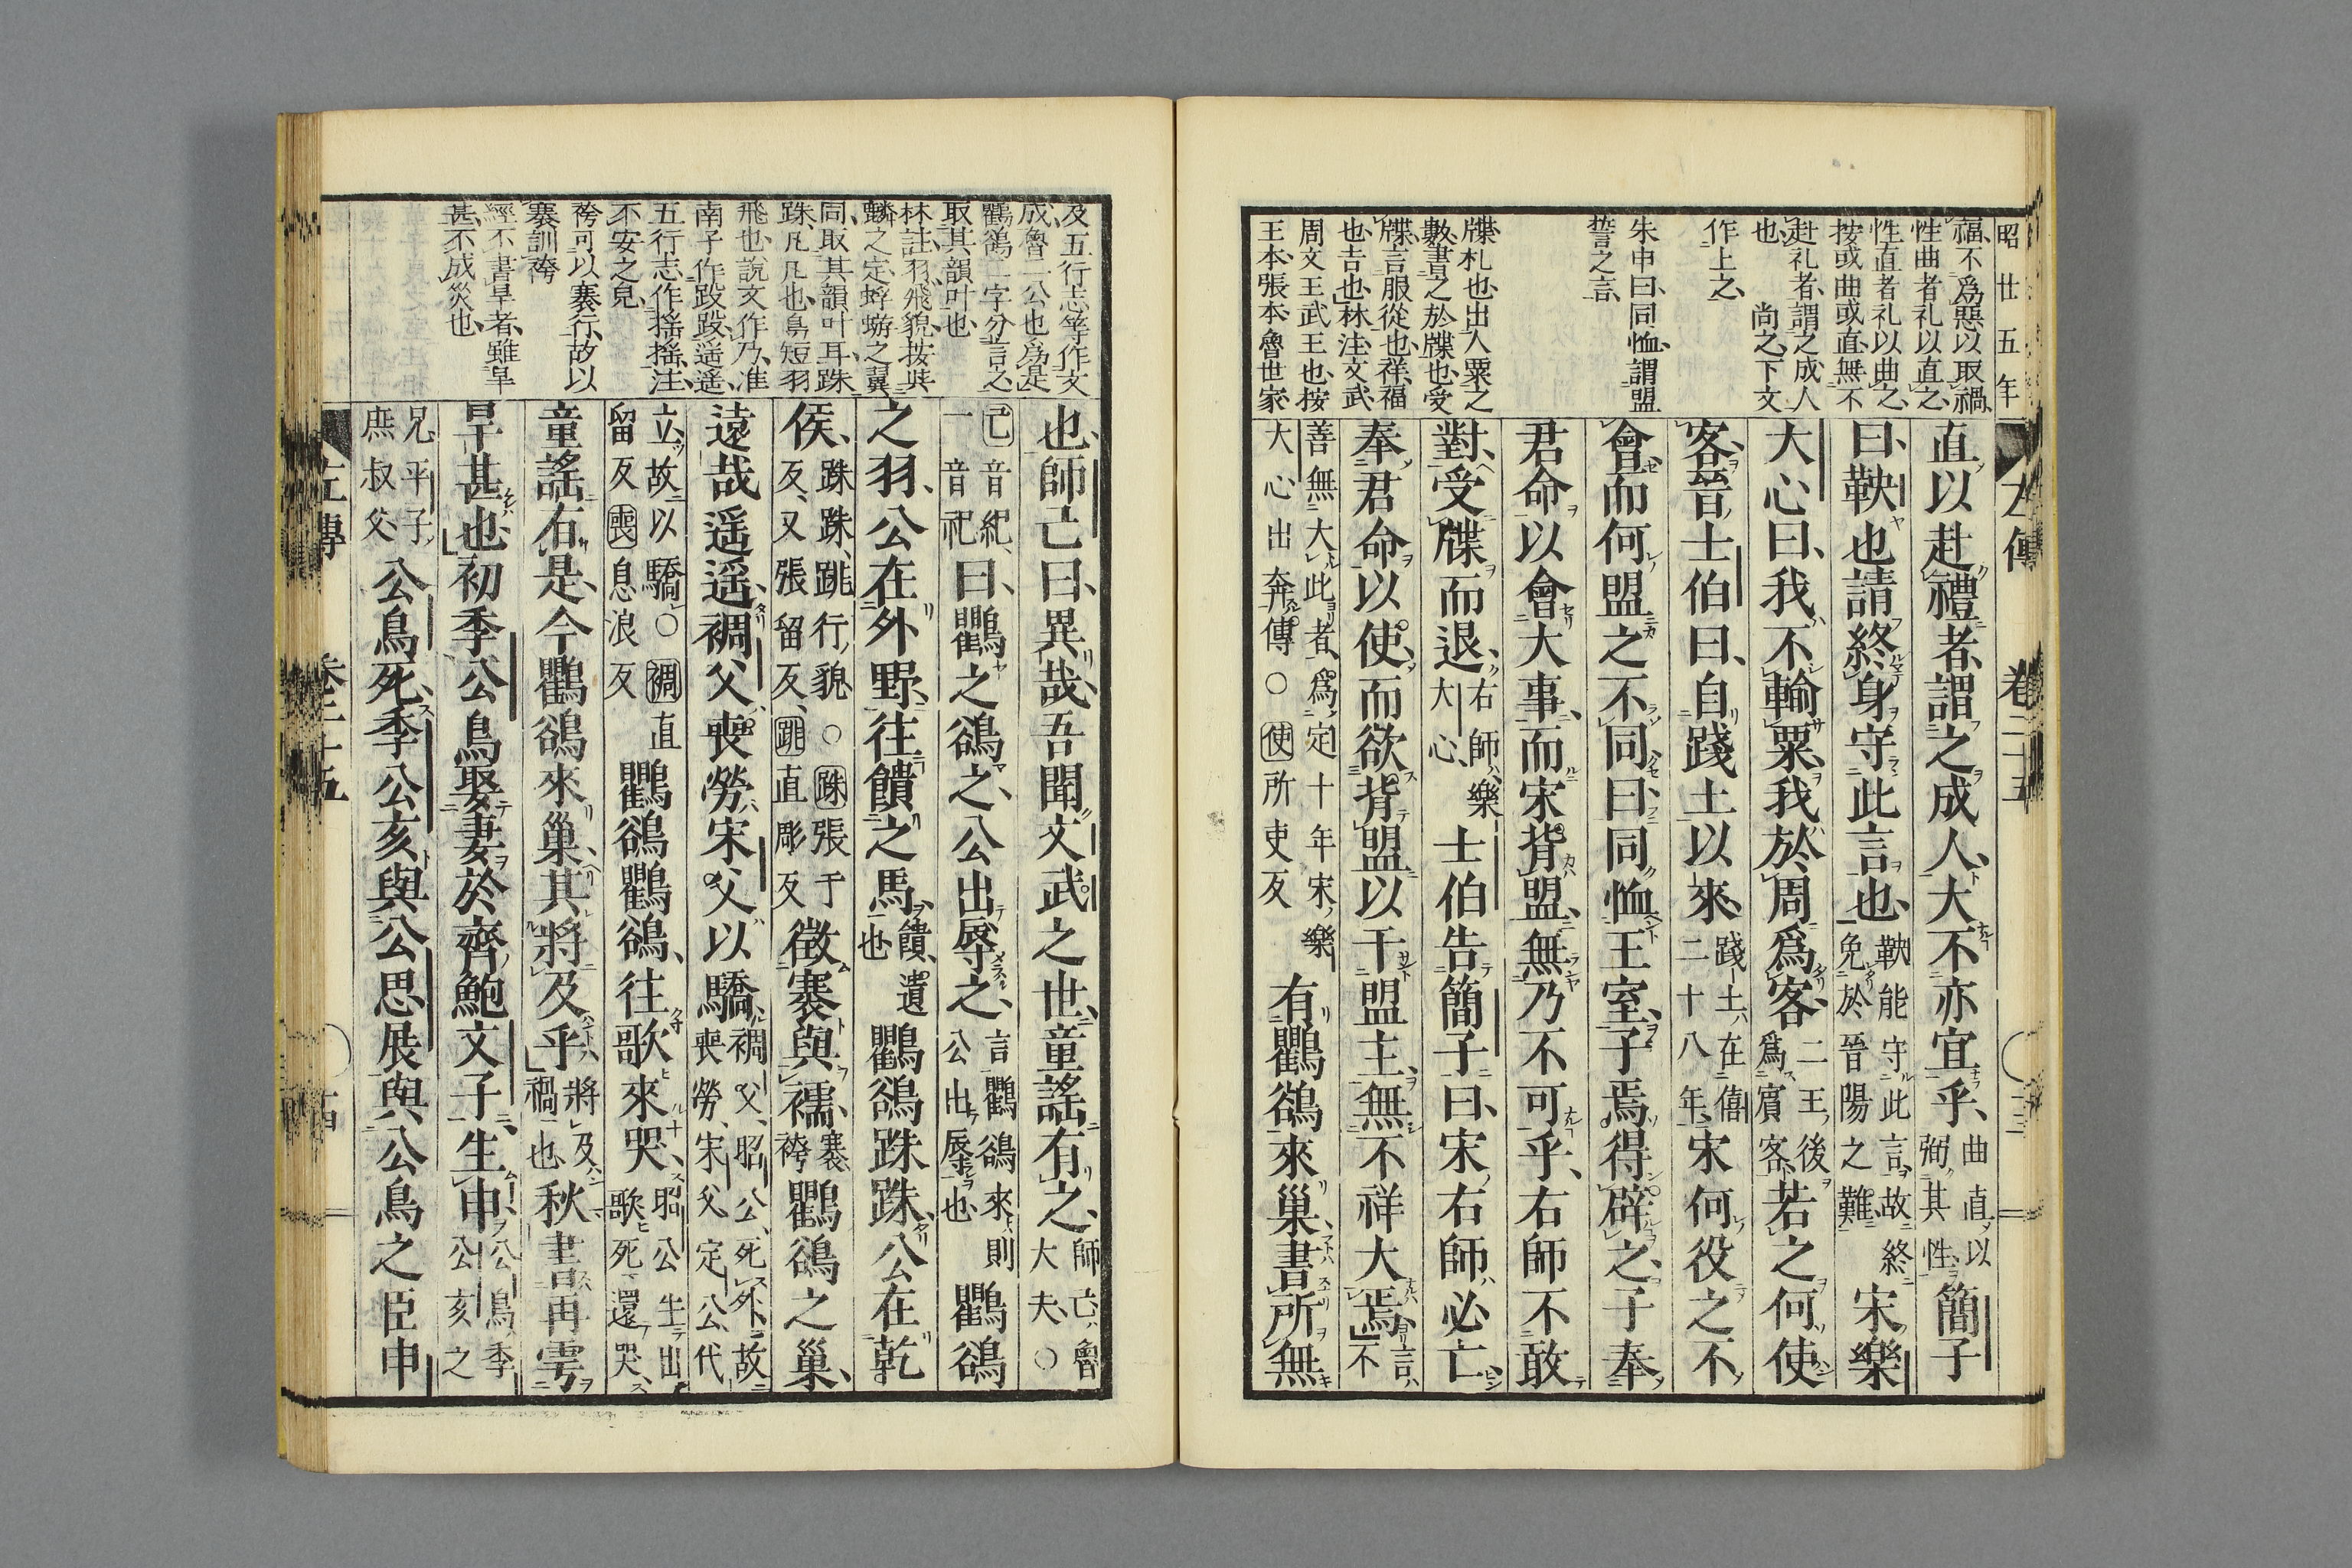 昭廿五年
福不爲惡以取禍
性曲者礼以直之
性直者礼以曲之
按或曲或直無不
赴礼者謂之成人
也 尚之下文
作上之
朱申曰同恤謂盟
誓之言
牒札也出人粟之
數書之於牒也受
牒言服從也祥福
也吉也林注文武
周文王武王也按
王本張本魯世家
左傳 卷二十五
直以赴禮者謂之成人大不亦宜乎曲直以弼其性簡子
曰鞅也請終身守此言也鞅能守此言故終免於晉陽之難宋樂
大心曰我不輸粟我於周爲客二王後爲賓客若之何使
客晉士伯曰自踐土以來踐土在僖二十八年宋何役之不
會而何盟之不同曰同恤王室子焉得辟之子奉
君命以會大事而宋背盟無乃不可乎右師不敢
對受牒而退右師樂大心士伯告簡子曰宋右師必亡
奉君命以使而欲背盟以干盟主無不祥大焉言不
善無大此者爲定十年宋樂大心出奔傳○使所吏反有鸜鵒來巢書所無
及五行志等作文
成魯一公也爲是
鸜鵒二字分言之
取其韻叶也
林註羽飛貌按與
蟒之定蜉蝣之翼
同取其韻叶耳跦
跦几几也鳥短羽
飛也說文作乃淮
南子作跤跤遥遥
五行志作搖搖注
不安之皃
袴可以褰行故以
褰訓袴
經不書旱者雖旱
甚不成災也
也師己曰異哉吾聞文武之世童謠有之師己魯大夫○
己音紀一音祀曰鸜之鵒之公出辱之言鸜鵒來則公出辱也鸜鵒
之羽公在外野往饋之馬饋遺也鸜鵒跦跦公在乾
侯跦跦跳行貌○跦張于反又張留反跳直彫反徵褰與襦褰袴鸜鵒之巢
遠哉遥遥裯父喪勞宋父以驕裯父昭公死外故喪勞宋父定公代
立故以驕○裯直留反喪息浪反鸜鵒鸜鵒往歌來哭昭公生出歌死還哭
童謠有是今鸜鵒來巢其將及乎將及禍也秋書再雩
旱甚也初季公鳥娶妻於齊鮑文子生申公鳥季公亥之
兄平子庶叔父公鳥死季公亥與公思展與公鳥之臣申
左傳 卷二十五 十四